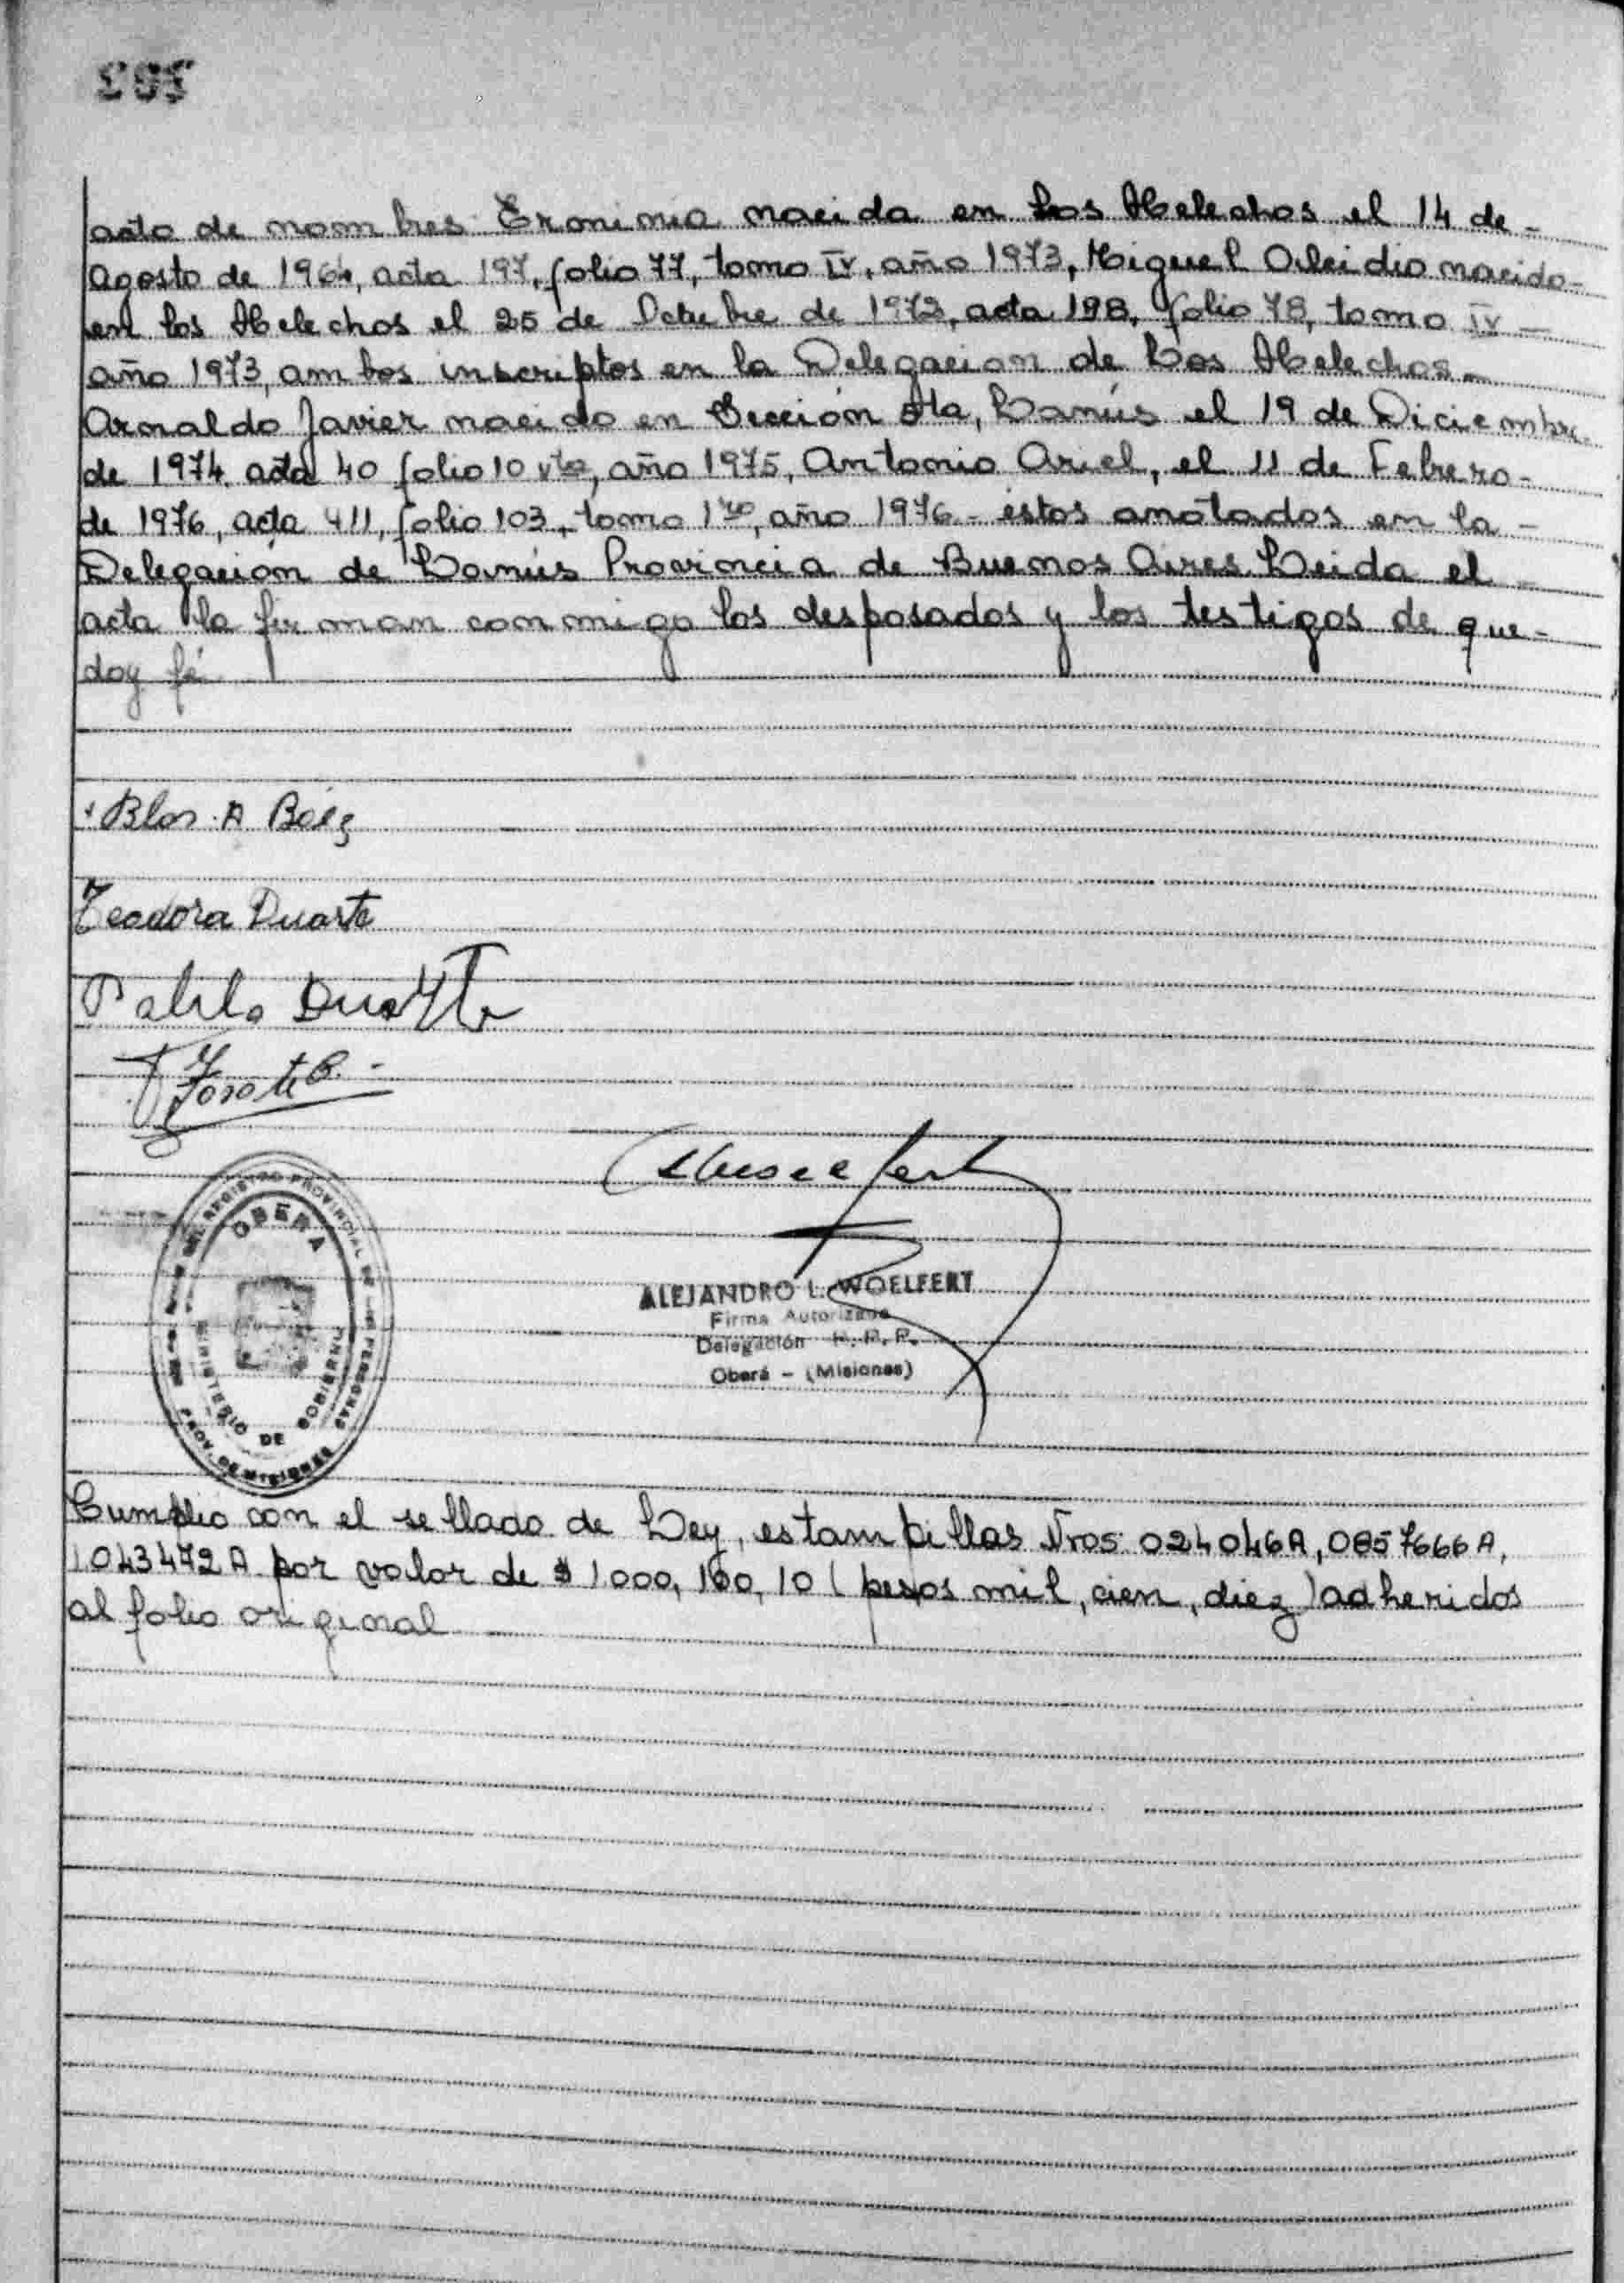 acto de nombres Erminia nacida en Los Helechos el 14 de -
Agosto de 1964, acta 197, folio 77, tomo IV, año 1973, Miguel Alcidio nacido -
en los Helechos el 25 de Octubre de 1972, acta 198, folio 78, tomo IV -
año 1973, ambos inscriptos en la Delegacion de Los Helechos -
Arnaldo Javier nacido en Sección 5ta, Lanús el 19 de Diciembre
de 1974, acta 40 folio 10 vto, año 1975, Antonio Ariel, el 11 de Febrero -
de 1976, acta 411, folio 103, tomo 1ro, año 1976 - éstos anotados en la -
Delegación de Lanús Provincia de Buenos Aires Leida el -
acta la firman conmigo los desposados y los testigos de que -
doy fé
Blas A Báez
Teodora Duarte
Pablo Duarte
ALEJANDRO L. WOELFERT
Firma Autorizada
Delegación R. P. P.
Oberá - (Misiones)
DEL REGISTRO PROVINCIAL DE LAS PERSONAS
OBERA
MINISTERIO DE GOBIERNO
PROV. DE MISIONES
Cumplio con el sellado de Ley, estampillas Nros 024046A, 0857666A,
1043472A por valor de $ 1000, 100, 10 (pesos mil, cien, diez) adheridos
al folio original